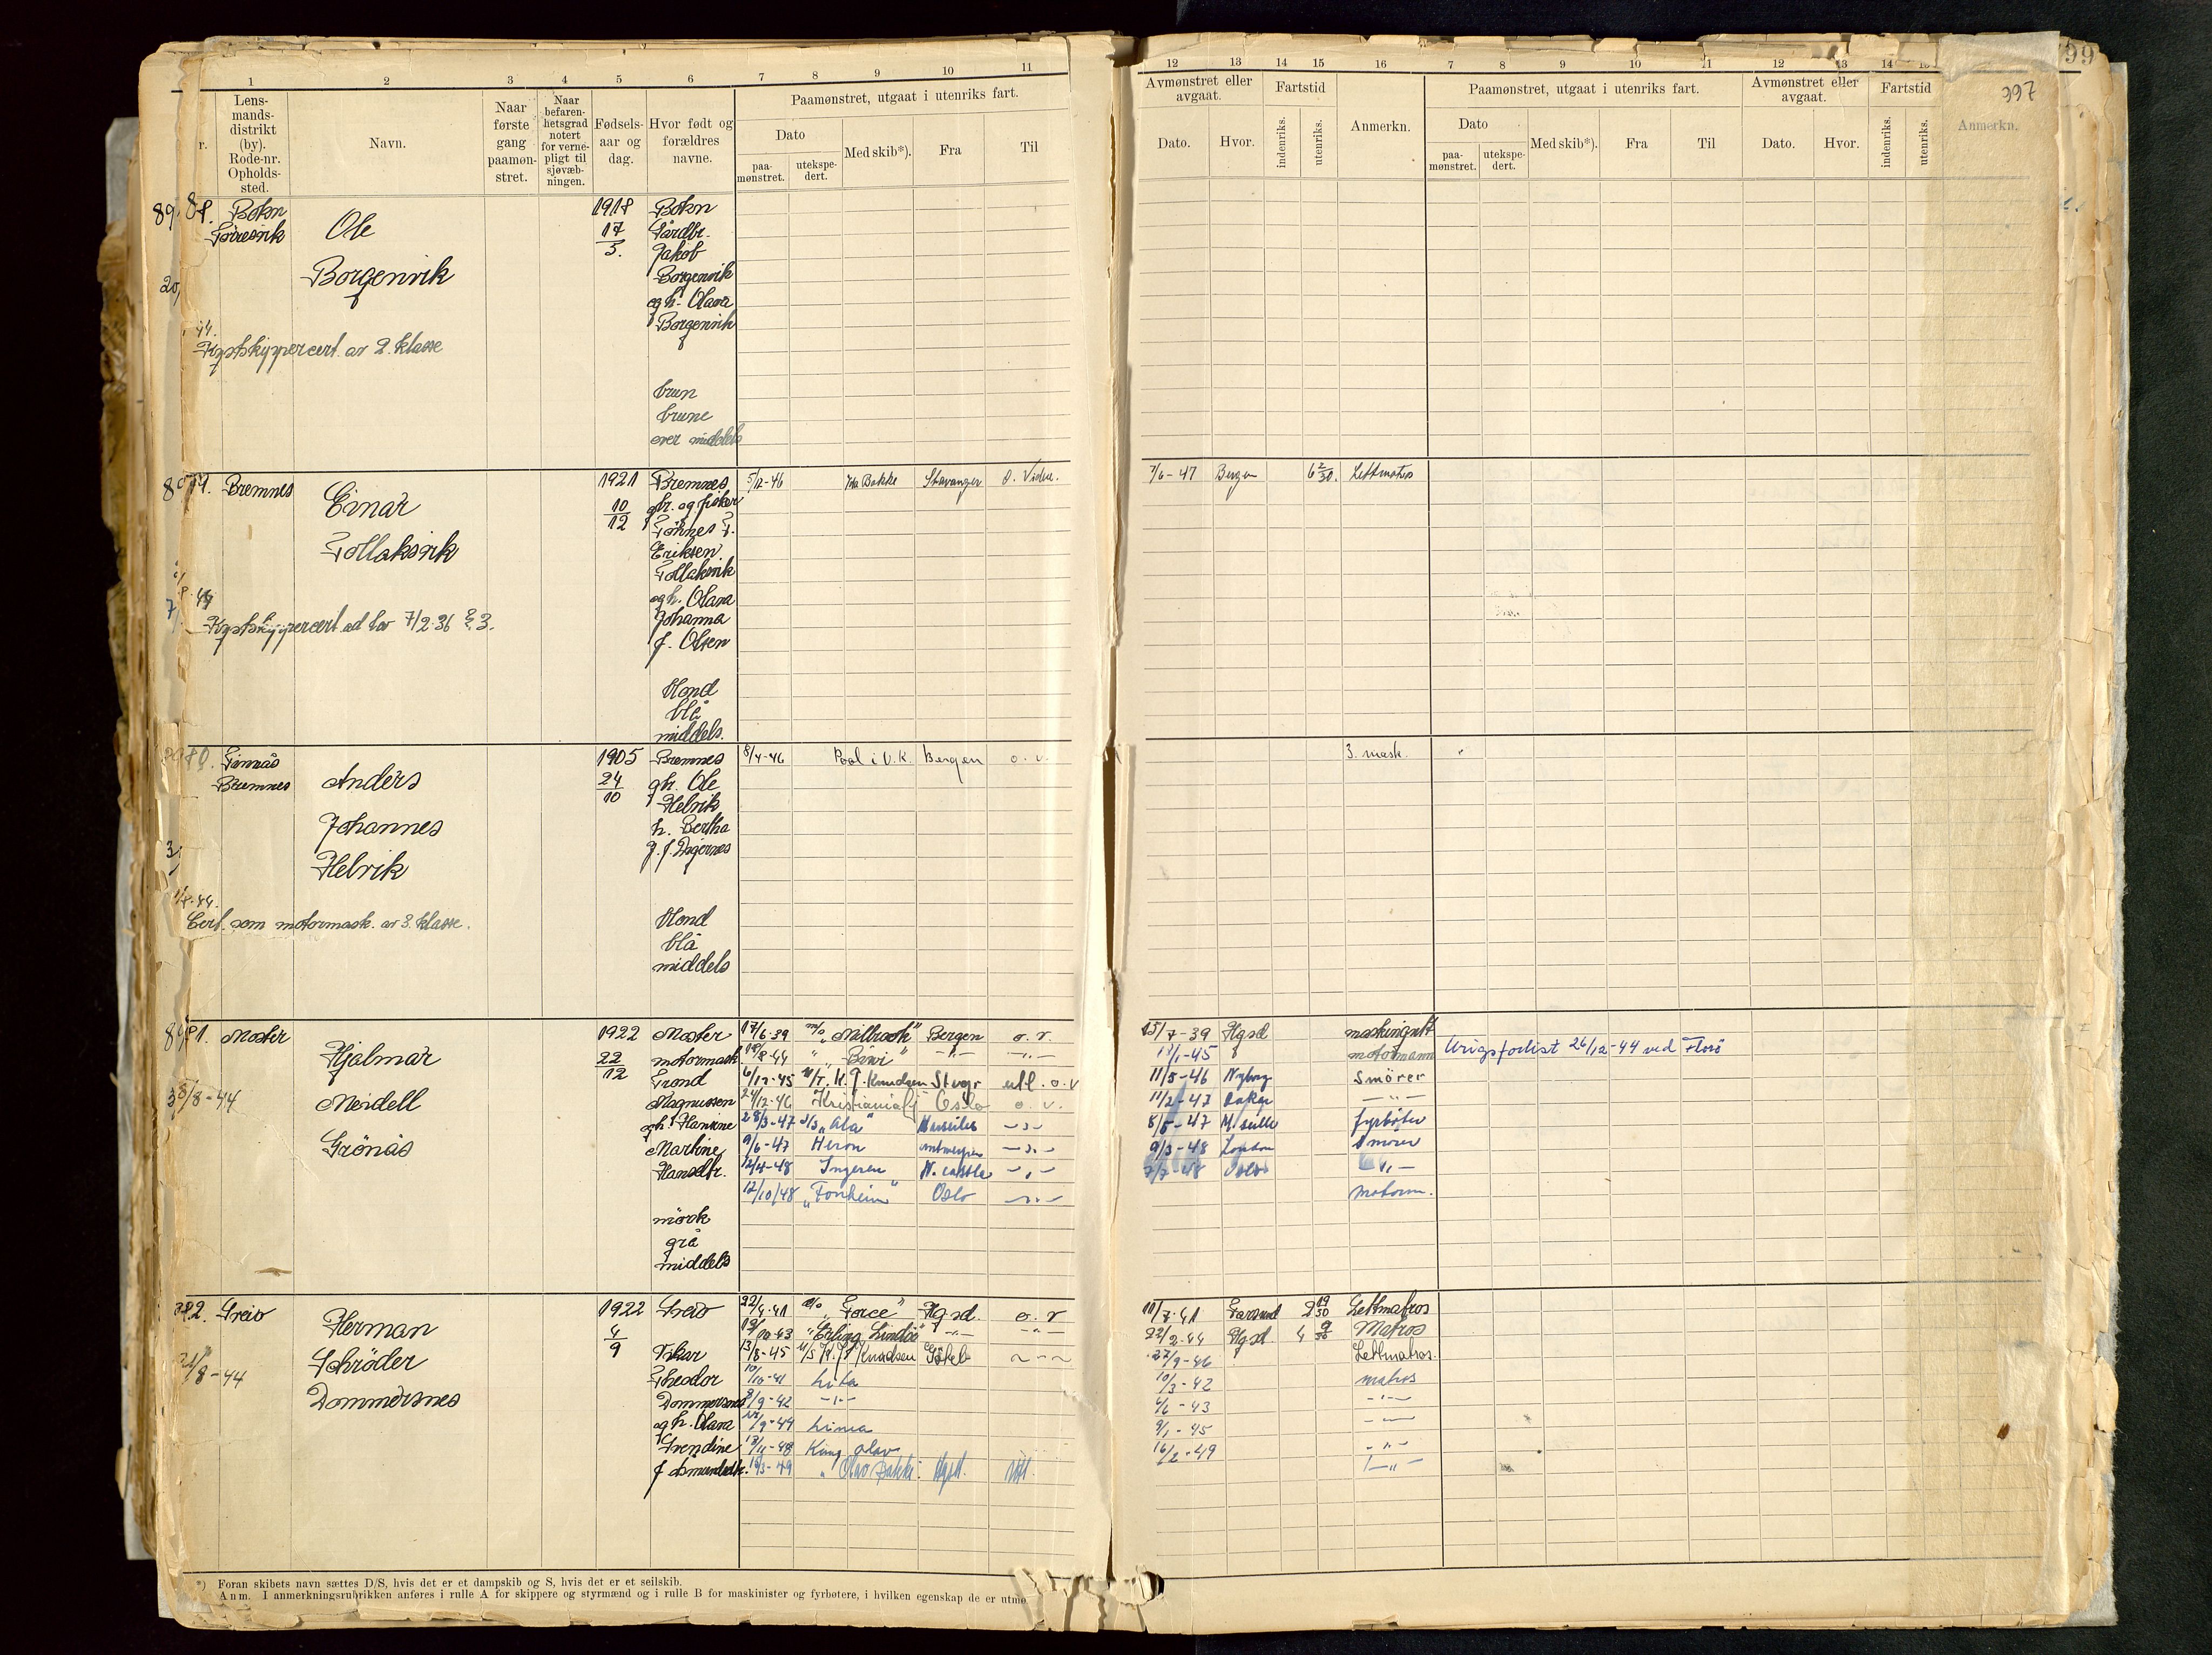 1 2 3 4 5 6 7 8 9 10 11
Lens-
mands-
distrikt
(by).
Rode-nr.
Opholds-
sted.
Navn.
Naar
første
gang
paamøn-
stret.
Naar
befaren-
hetsgrad
notert
for verne-
pligt til
sjøvæb-
ningen.
Fødsels-
aar og
dag.
Hvor født og
forældres
navne.
Paamønstret, utgaat i utenriks fart.
Dato
paa-
mønstret.
utekspe-
dert.
Med skib*).
Fra
Til
Bokn
Føresvik
Ole
Borgenvik
1918
17
5.
Bokn
Gårdbr.
Jakob
Borgenvik
og h. Olava
Borgenvik
44.
Kystskippercert. av 2. klasse
brun
brune
over middels
Bremnes
Einar
Tollaksvik
1921
10
12
Bremnes
gbr. og fisker
Eriksen
Tollaksvik
og h. Olava
Johanna
f. Olsen
5/12-46 Ida Bakke Stavanger
Kystskippercert. ad lov 7/2-36 § 3.
blond
blå
middels.
Finnås
Bremnes
Anders
Johannes
Helvik
1905
24
10
Bremnes
gbr. Ole
Helvik
h. Bertha
8/4-46 Pool i U.K. Bergen o. v.
Cert. som motormask. av 3. klasse.
blond
blå
middels
Moster
Hjalmar
Meidell
Grönås
1922
22
12
Moster
motormask
Trond
Magnussen
og h. Hansine
Martine
Hansdtr.
mörk
grå
middels
8-44
17/6-39 m/s „Milbrook" Bergen o. v.
6/12-45 M/T. K. J. Knudsen Stvgr utl. o.v
24/12-46 Kristianiafj Oslo o. v.
28/3-47 „Ala" Marseilles
9/6-47 Heron Antwerpen
12/4-48 Ingeren N. castle
12/10/48 „Fonheim" Oslo
Sveio
Herman
Schröder
Dommersnes
1922
4
9
Sveio
Fiskar
Theodor
Dommersnes
og h. Olava
8-44
22/4-41 „Force" Hgsd. o. v
10-43 „Erling Lindöe"
13/8-45 M/S K. J. Knudsen
10-41 Lita
9-42
9-44 Lima
11-48 Kong Olav
3-49 „Olav Bakke" Hgsd. Utl.
*) Foran skibets navn sættes D/S, hvis det er et dampskib og S, hvis det er et seilskib.
Anm. I anmerkningsrubrikken anføres i rulle A for skippere og styrmænd og i rulle B for maskinister og fyrbøtere, i hvilken egenskap de er utmø
12 13 14 15 16 7 8 9 10 11 12 13 14 15
99
397
Avmønstret eller
avgaat.
Dato.
Hvor.
Fartstid
indenriks.
utenriks.
Anmerkn.
Paamønstret, utgaat i utenriks fart.
Dato
paa-
mønstret.
utekspe-
dert.
Med skib*).
Fra
Til
Avmønstret eller
avgaat.
Dato.
Hvor.
Fartstid
indenriks.
utenriks.
Anmerkn.
7/6-47 Bergen 6 2/30. Lettmatros
3. mask.
15/7-39 Hgsd maskingutt
1-45 motormann Krigsforlist 26/12-44 ved Florö
11/5-46 Nyborg Smörer
11/2-47
8/5-47 M.seille fyrböter
9/3-48 London Smörer
7/7-48 Oslo
motorm.
11/7-41 Farsund 2 19/30 Lettmatros
22/2-44 Hgsd 4 9/30 Matros
27/9-46 Lettmatros.
10/3-42 matros
4/6-43
9/1-45
16/2-49